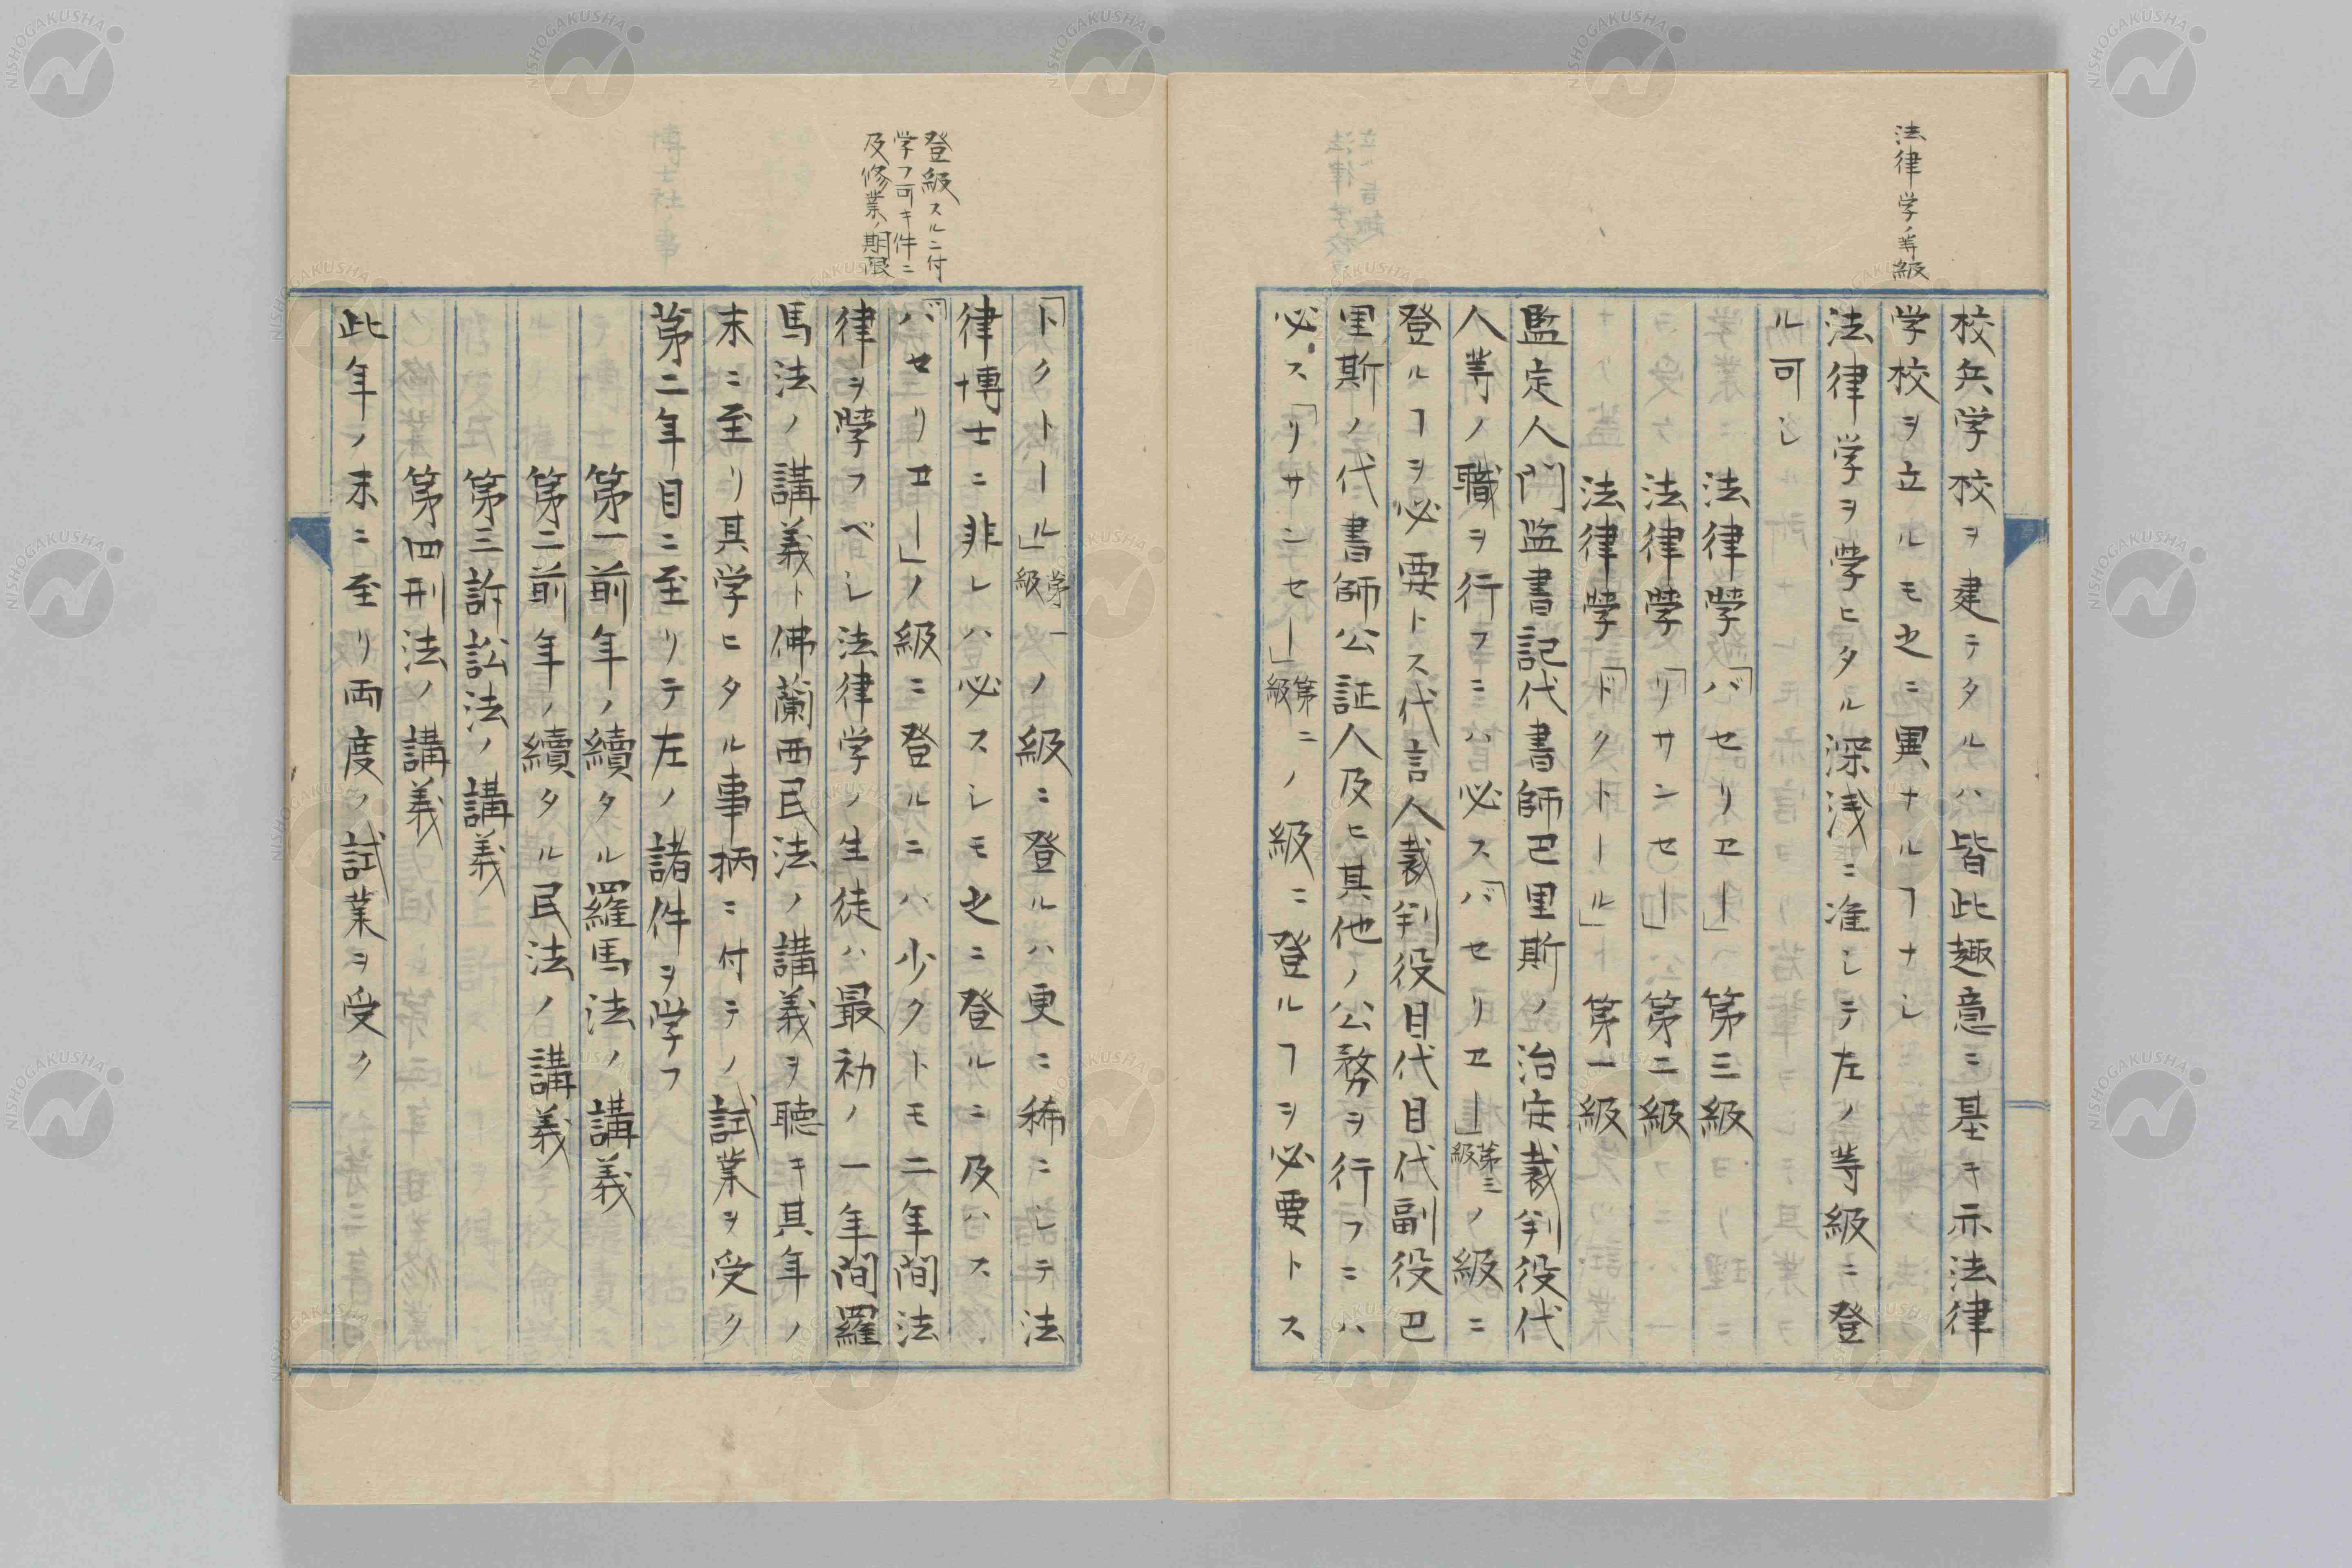 法律学ノ等級
校兵学校ヲ建テタルハ皆此趣意ニ基キ示法律
学校ヲ立ルモ之ニ異ナルヿナシ
法律学ヲ学ヒタル深浅ニ准シテ左ノ等級ニ登
ル可シ
法律學「バセリヱー」第三級
法律學「リサンセー」第二級
法律學「ドクトール」第一級
監定人門監書記代書師巴里斯ノ治安裁判役代
人等ノ職ヲ行フニハ必ス「バセリヱー」第三級ノ級ニ
登ルヿヲ必要トス代言人裁判役目代目代副役巴
里斯ノ代書師公証人及ヒ其他ノ公務ヲ行フニハ
必ス「リサンセー」第二級ノ級ニ登ルヿヲ必要トス
登級スルニ付
学フ可キ件ニ
及修業ノ期限
「ドクトール」第一級ノ級ニ登ルハ更ニ稀ニシテ法
律博士ニ非レハ必スシモ之ニ登ルニ及ハス
「バセリヱー」ノ級ニ登ルニハ少クトモ二年間法
律ヲ學フベシ法律学ノ生徒ハ最初ノ一年間羅
馬法ノ講義ト佛蘭西民法ノ講義ヲ聴キ其年ノ
末ニ至リ其学ヒタル事柄ニ付テノ試業ヲ受ク
第二年目ニ至リテ左ノ諸件ヲ学フ
第一前年ノ續タル羅馬法ノ講義
第二前年ノ續タル民法ノ講義
第三訴訟法ノ講義
第四刑法ノ講義
此年ノ末ニ至リ両度ノ試業ヲ受ク
NISHOGAKUSHA